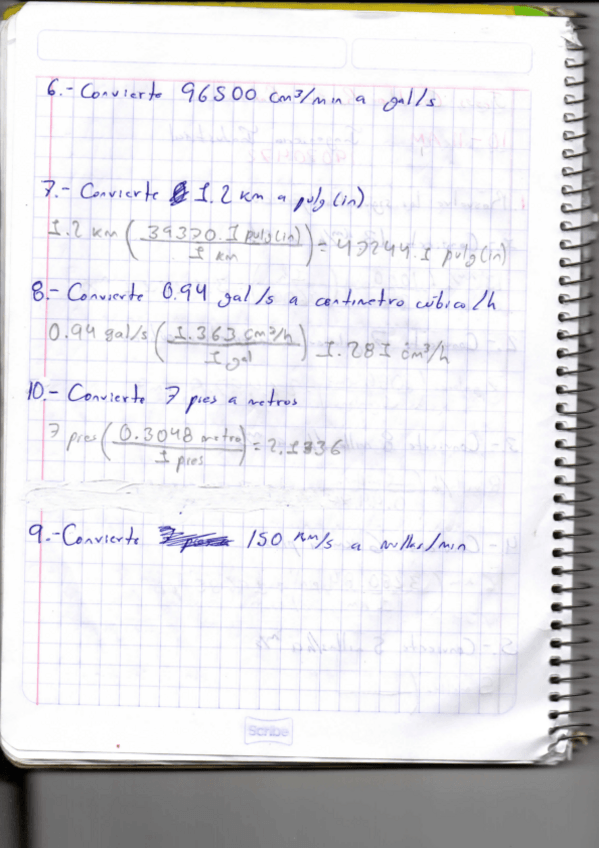 6.- Convierte 96500 cm³/min a gal/s
7.- Convierte 1.2 km a pulg (in)
1.2 km ( 39370.1 pulg (in) / 1 km ) = 47244.1 pulg (in)
8.- Convierte 0.94 gal/s a centimetro cúbico/h
0.94 gal/s ( 1.363 cm³/h / 1 gal ) 1.281 cm³/h
10.- Convierte 7 pies a metros
7 pies ( 0.3048 metro / 1 pies ) = 2.1336
9.- Convierte 150 Km/s a millas/min
Scribe